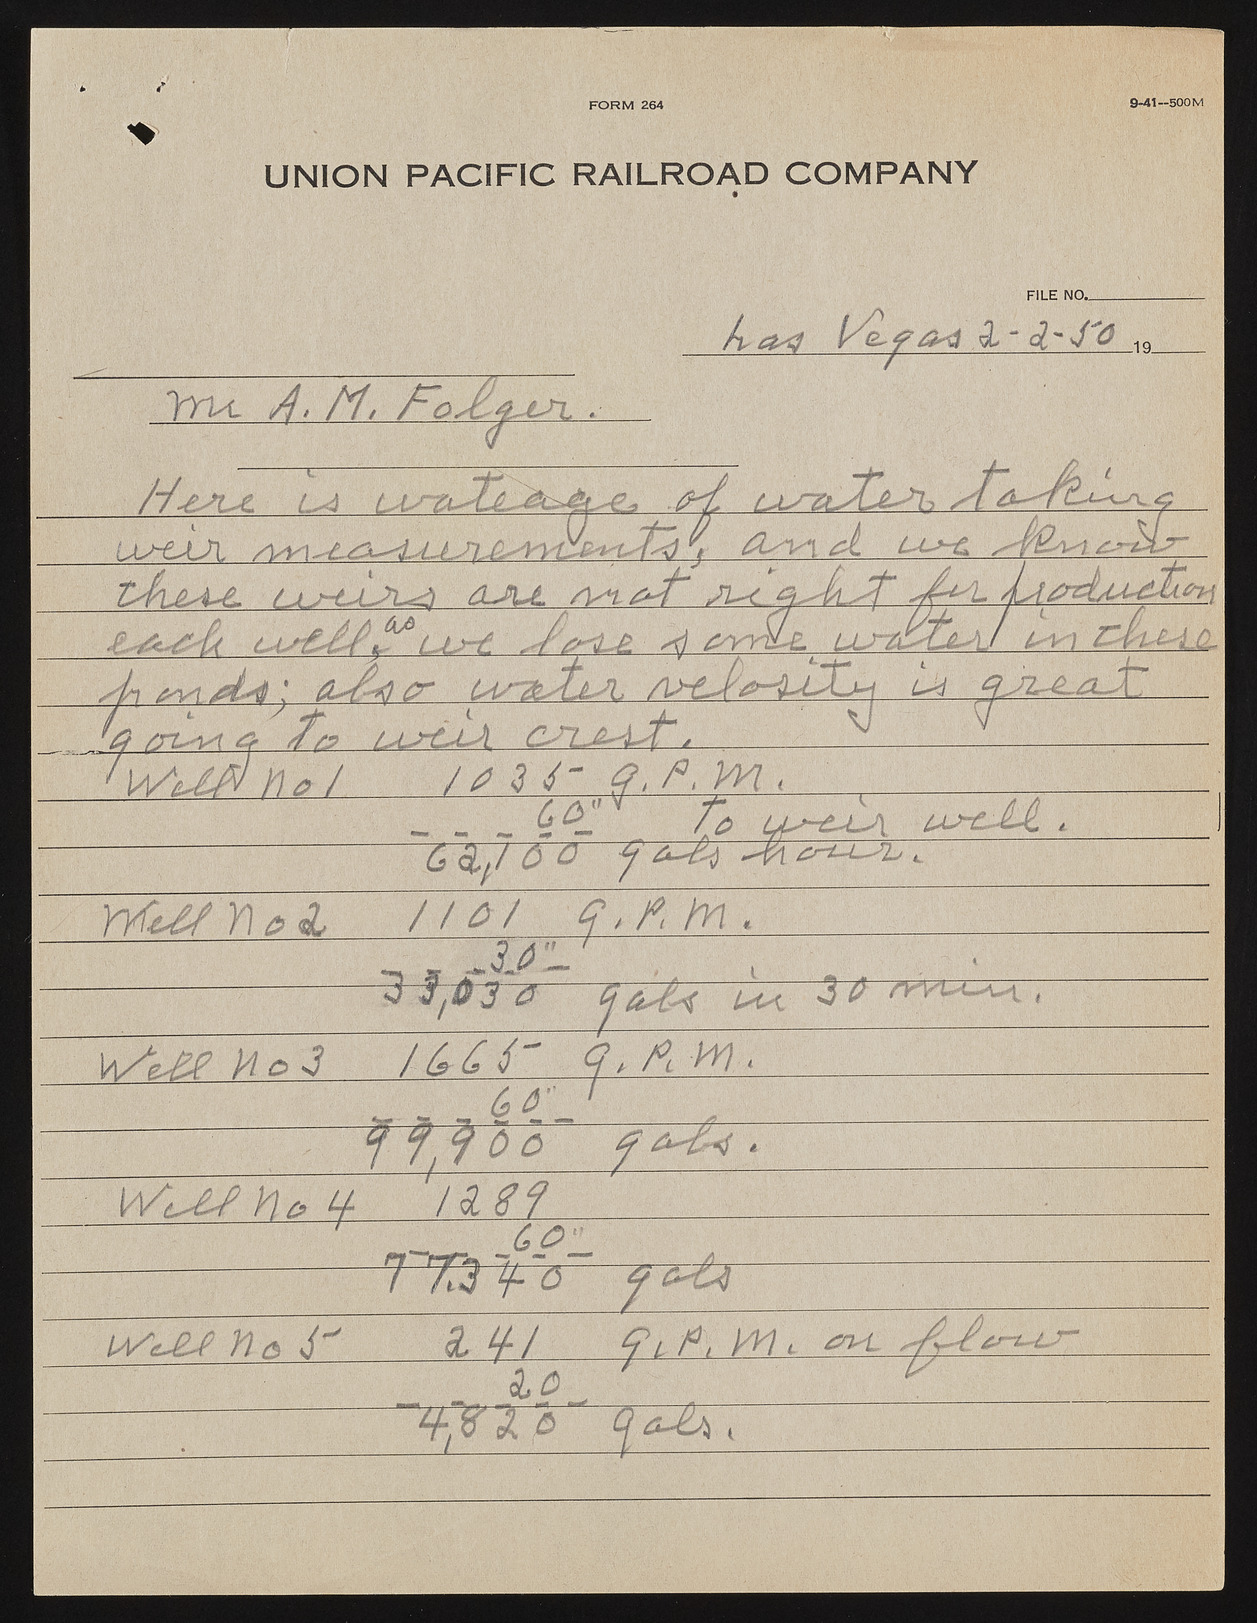 FORM 264
9-41--500M
UNION PACIFIC RAILROAD COMPANY
FILE NO.
Las Vegas 2-2-50 19
Mr A. M. Folger.
Here is wateage of water taking
weir measurements, and we know
these weirs are not right for production
each well, as we lose some water in these
ponds; also water velosity is great
going to weir crest.
Well No 1 1035 G.P.M.
60" To weir well.
62,100 gals hour.
Well No 2 1101 G.P.M.
30"
33,030 gals in 30 min.
Well No 3 1665 G.P.M.
60"
99,900 gals.
Well No 4 1289
60"
77.340 gals
Well No 5 241 G.P.M. on flow
20
4,820 gals.